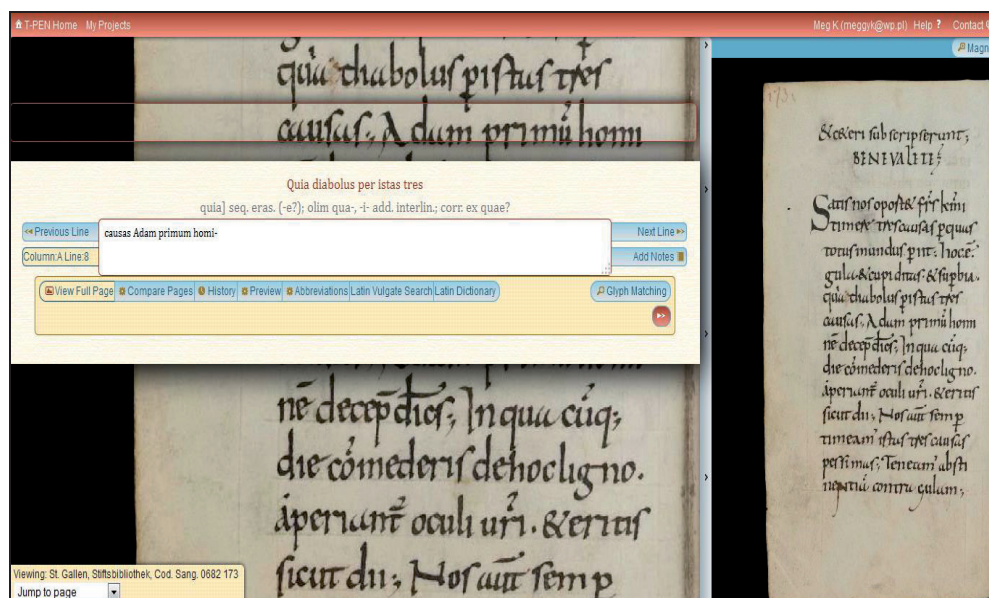 T-PEN Home My Projects
Meg K (meggyk@wp.pl) Help ? Contact
Magn
quia diabolus pistas tres
causas; Adam primū homi
Quia diabolus per istas tres
quia] seq. eras. (-e?); olim qua-, -i- add. interlin.; corr. ex quae?
Previous Line
causas Adam primum homi-
Next Line
Column:A Line:8
Add Notes
View Full Page Compare Pages History Preview Abbreviations Latin Vulgate Search Latin Dictionary
Glyph Matching
nē decep dies; In qua cūq;
die cōmederis dehocligno.
aperiant̄ oculi ur̄i. & eritis
sicut dii; Nos aūt semp
Viewing: St. Gallen, Stiftsbibliothek, Cod. Sang. 0682 173
Jump to page
173
& ceteri subscripserunt;
BENEVALETE;
Satis nos oportet fr̄s kīmi
timere tres causas pquas
totus mundus pīit; hoc ē.
gula & cupiditas & supbia.
quia diabolus pistas tres
causas; Adam primū homi
nē decep dies; In qua cūq;
die cōmederis dehocligno.
aperiant̄ oculi ur̄i. & eritis
sicut dii; Nos aūt semp
timeam istas tres causas
pessimas; Teneam absti
nentiā contra gulam;